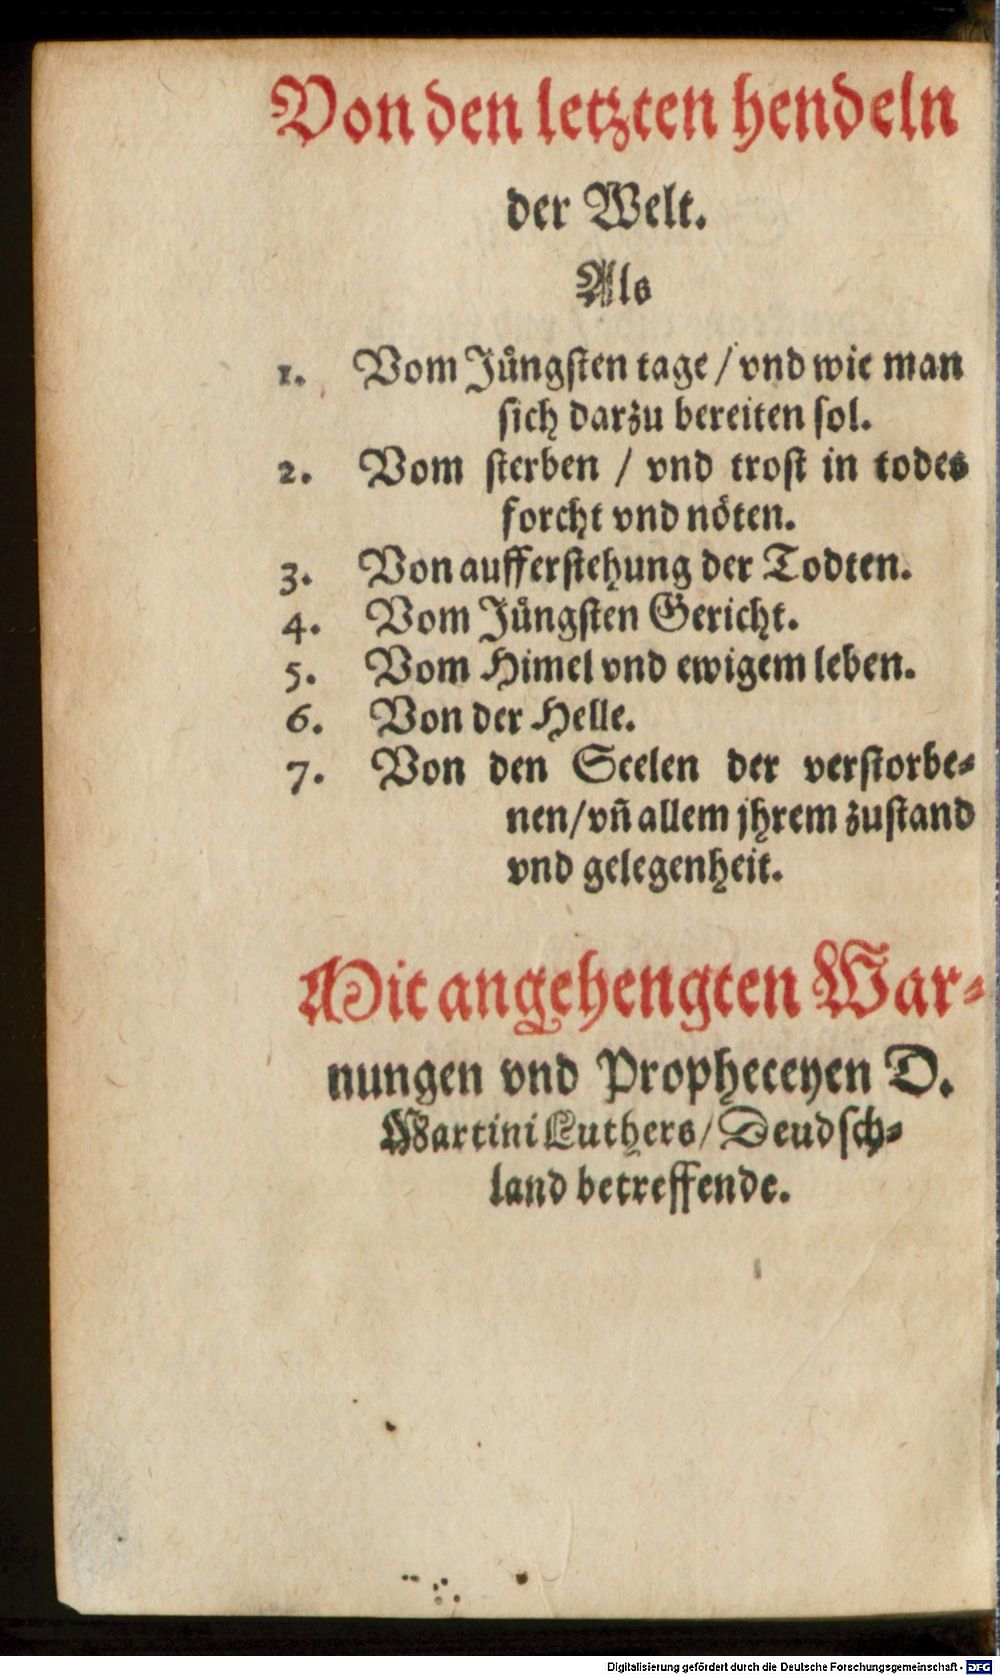 Von den letzten hendeln
der Welt.
Als
1. Vom Jůngsten tage / vnd wie man
sich darzu bereiten sol.
2. Vom sterben / vnd trost in todes
forcht vnd nöten.
3. Von aufferstehung der Todten.
4. Vom Jůngsten Gericht.
5. Vom Himel vnd ewigem leben.
6. Von der Helle.
7. Von den Seelen der verstorbe-
nen/vn̄ allem jhrem zustand
vnd gelegenheit.
Mit angehengten War-
nungen vnd Propheceyen D.
Martini Luthers/ Deudsch-
land betreffende.
Digitalisierung gefördert durch die Deutsche Forschungsgemeinschaft - DFG